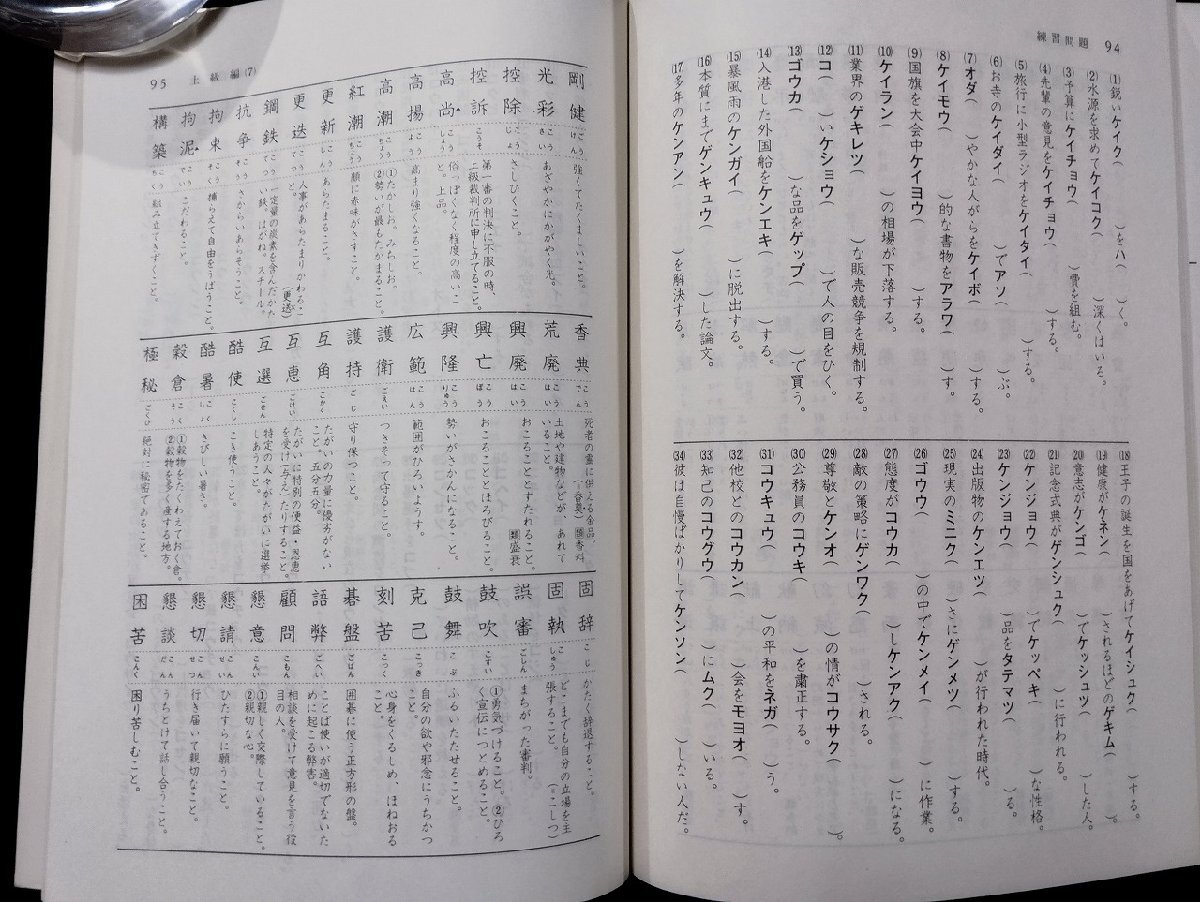 練習問題 94
(1)鋭いケイク( )をハ( )く。
(2)水源を求めてケイコク( )深くはいる。
(3)予算にケイチョウ( )費を組む。
(4)先輩の意見をケイチョウ( )する。
(5)旅行に小型ラジオをケイタイ( )する。
(6)お寺のケイダイ( )でアソ( )ぶ。
(7)オダ( )やかな人がらをケイボ( )する。
(8)ケイモウ( )的な書物をアラワ( )す。
(9)国旗を大会中ケイヨウ( )する。
(10)ケイラン( )の相場が下落する。
(11)業界のゲキレツ( )な販売競争を規制する。
(12)コ( )いケショウ( )で人の目をひく。
(13)ゴウカ( )な品をゲップ( )で買う。
(14)入港した外国船をケンエキ( )する。
(15)暴風雨のケンガイ( )に脱出する。
(16)本質にまでゲンキュウ( )した論文。
(17)多年のケンアン( )を解決する。
(18)王子の誕生を国をあげてケイシュク( )する。
(19)健康がケネン( )されるほどのゲキム( )。
(20)意志がケンゴ( )でケッシュツ( )した人。
(21)記念式典がゲンシュク( )に行われる。
(22)ケンジョウ( )でケッペキ( )な性格。
(23)ケンジョウ( )品をタテマツ( )る。
(24)出版物のケンエツ( )が行われた時代。
(25)現実のミニク( )さにゲンメツ( )する。
(26)ゴウウ( )の中でケンメイ( )に作業。
(27)態度がコウカ( )しケンアク( )になる。
(28)敵の策略にゲンワク( )される。
(29)尊敬とケンオ( )の情がコウサク( )。
(30)公務員のコウキ( )を粛正する。
(31)コウキュウ( )の平和をネガ( )う。
(32)他校とのコウカン( )会をモヨオ( )す。
(33)知己のコウグウ( )にムク( )いる。
(34)彼は自慢ばかりしてケンソン( )しない人だ。
95 上級編(7)
剛健 ごうけん 強くてたくましいこと。
光彩 こうさい あざやかにかがやく光。
控除 こうじょ さしひくこと。
控訴 こうそ 第一審の判決に不服の時、二級裁判所に申し立てること。
高尚 こうしょう 俗っぽくなく程度の高いこと。上品。
高揚 こうよう 高まり強くなること。
高潮 こうちょう ①たかしお。みちしお。②勢いが最もたかまること。
紅潮 こうちょう 顔に赤味がさすこと。
更新 こうしん あらたまること。
更迭 こうてつ 人事があらたまりかわること。(更送)
鋼鉄 こうてつ 一定量の炭素を含んだかたい鉄。はがね。スチール。
抗争 こうそう さからいあらそうこと。
拘束 こうそく 捕らえて自由をうばうこと。
拘泥 こうでい こだわること。
構築 こうちく 組み立てきずくこと。
香典 こうでん 死者の霊に供える金品。
荒廃 こうはい 土地や建物などが、あれていること。
興廃 こうはい おこることとすたれること。類盛衰
興亡 こうぼう おこることとほろびること。
興隆 こうりゅう 勢いがさかんになること。
広範 こうはん 範囲がひろいようす。
護衛 ごえい つきそって守ること。
護持 ごじ 守り保つこと。
互角 ごかく たがいの力量に優劣がないこと。五分五分。
互恵 ごけい たがいに特別の便益・恩恵を受け(与え)たりすること。
互選 ごせん 特定の人々がたがいに選挙しあうこと。
酷使 こくし こき使うこと。
酷暑 こくしょ きびしい暑さ。
穀倉 こくそう ①穀物をたくわえておく倉。②穀物を多く産する地方。
極秘 ごくひ 絶対に秘密であること。
固辞 こじ かたく辞退すること。
固執 こしゅう どこまでも自分の立場を主張すること。(=こしつ)
誤審 ごしん まちがった審判。
鼓吹 こすい ①勇気づけること。②ひろく宣伝につとめること。
鼓舞 こぶ ふるいたたせること。
克己 こっき 自分の欲や邪念にうちかつこと。
刻苦 こっく 心身をくるしめ、ほねおること。
碁盤 ごばん 囲碁に使う正方形の盤。
語弊 ごへい ことば使いが適切でないために起こる弊害。
顧問 こもん 相談を受けて意見を言う役目の人。
懇意 こんい ①親しく交際していること。②親切な心。
懇請 こんせい ひたすらに願うこと。
懇切 こんせつ 行き届いて親切なこと。
懇談 こんだん うちとけて話し合うこと。
困苦 こんく 困り苦しむこと。